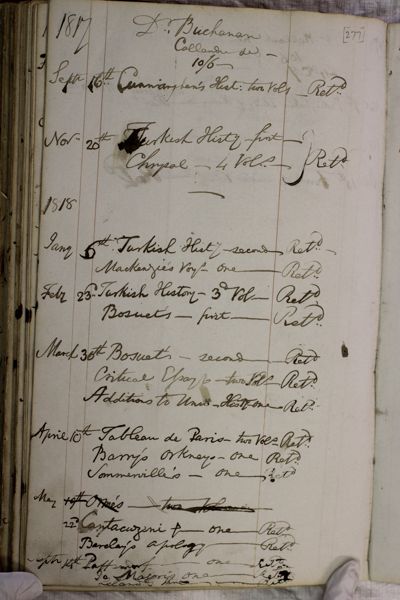 1817 Dr Buchanan [277]
Callander de —
10/6
Septr 16th Cunningham's Hist: two Vols Retd
Novr 20th Turkish Histy first —
Chrysal — 4 Vols — Retd
1818
Jany 6th Turkish Histy — second — Retd
Mackenzie's Voys — one — Retd
Feby 23d Turkish History — 3d Vol — Retd
Bosuet's — first — Retd
March 30th Bosuet's — second — Retd
Critical Essays — two Vols — Retd
Additions to Univ. Histy one — Retd
April 10th Tableau de Paris — two Vols Retd
Barry's Orkneys — one — Retd
Sommerville's — one — Retd
May 19th Orme's — two
22d Cantacuzeni — one — Retd
Barclay's apology — Retd
14th — one — Retd
one — Retd